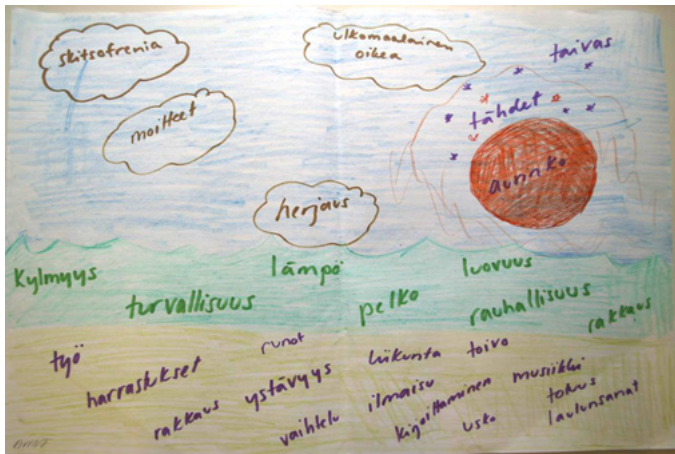 skitsofrenia
ulkomaalainen
oikea
taivas
moitteet
tähdet
aurinko
herjaus
Kylmyys
lämpö
luovuus
turvallisuus
pelko
rauhallisuus
rakkaus
työ
runot
liikunta
toivo
harrastukset
ystävyys
ilmaisu
musiikki
rakkaus
vaihtelu
kirjoittaminen
totuus
usko
laulunsanat